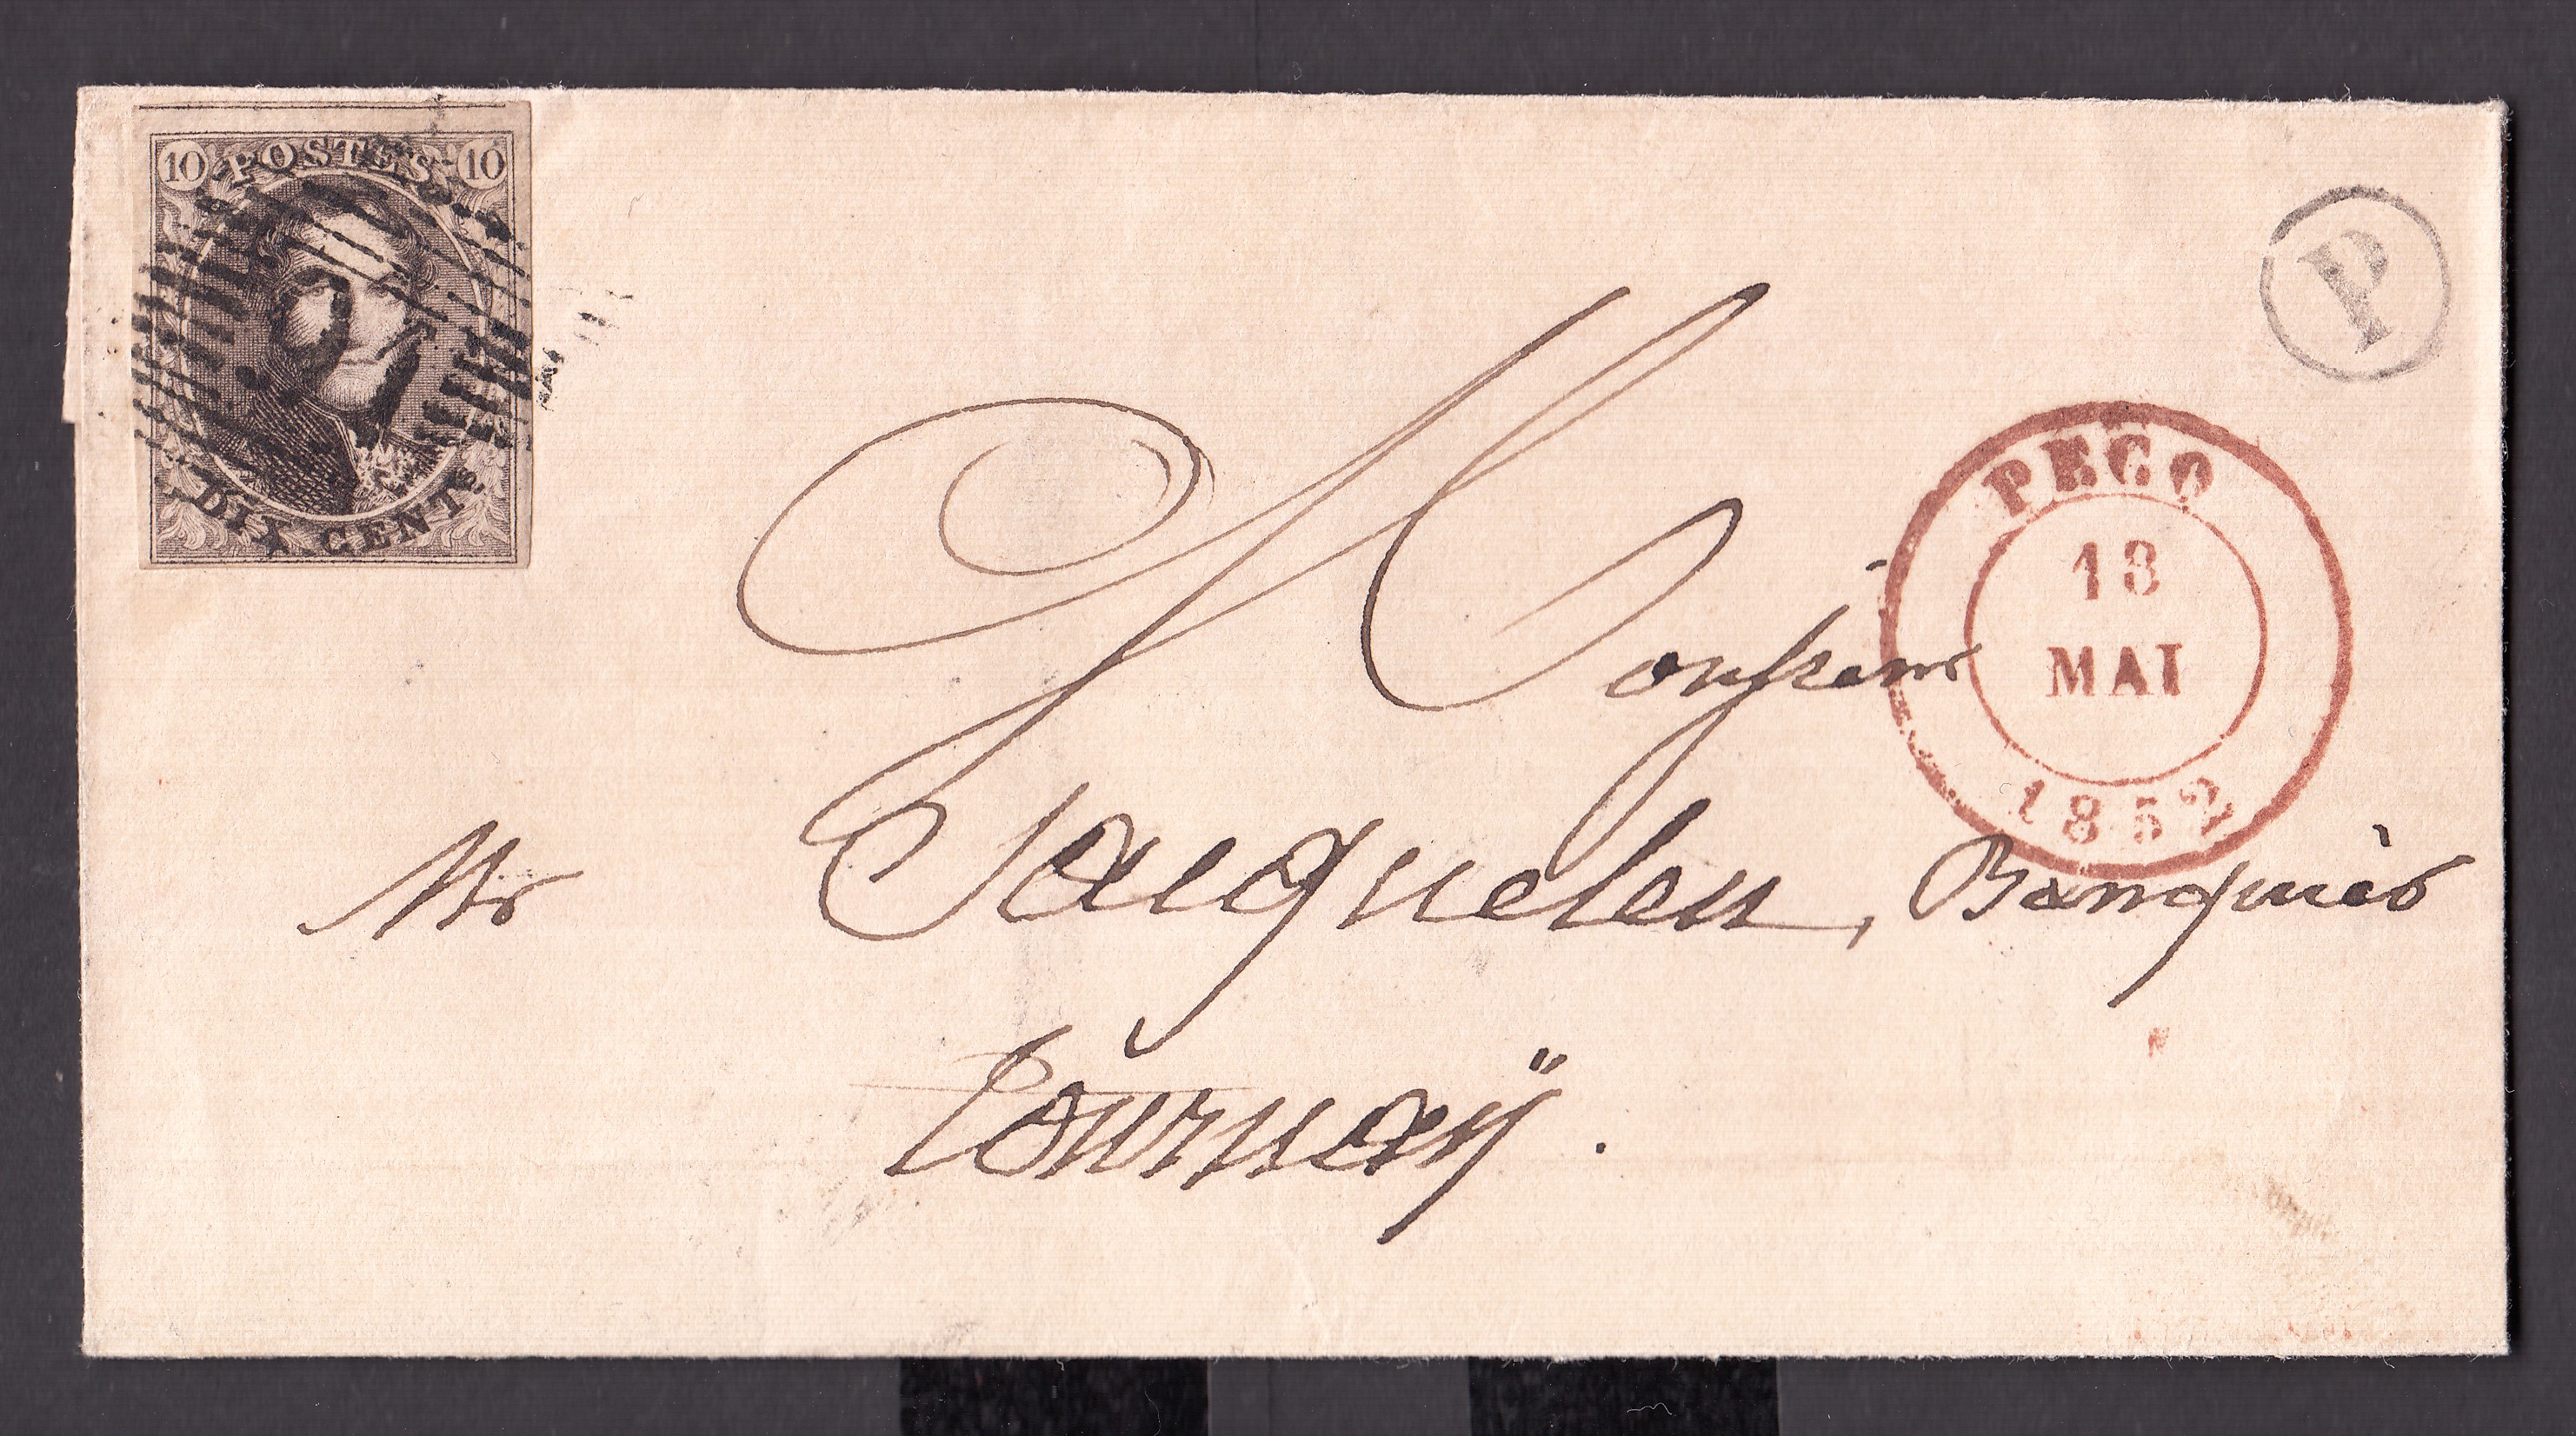 10 POSTES 10
DIX CENTS.
P
PECQ
13
MAI
1852
Monsieur
Mr Jacquelen, Banquier
Tournay.